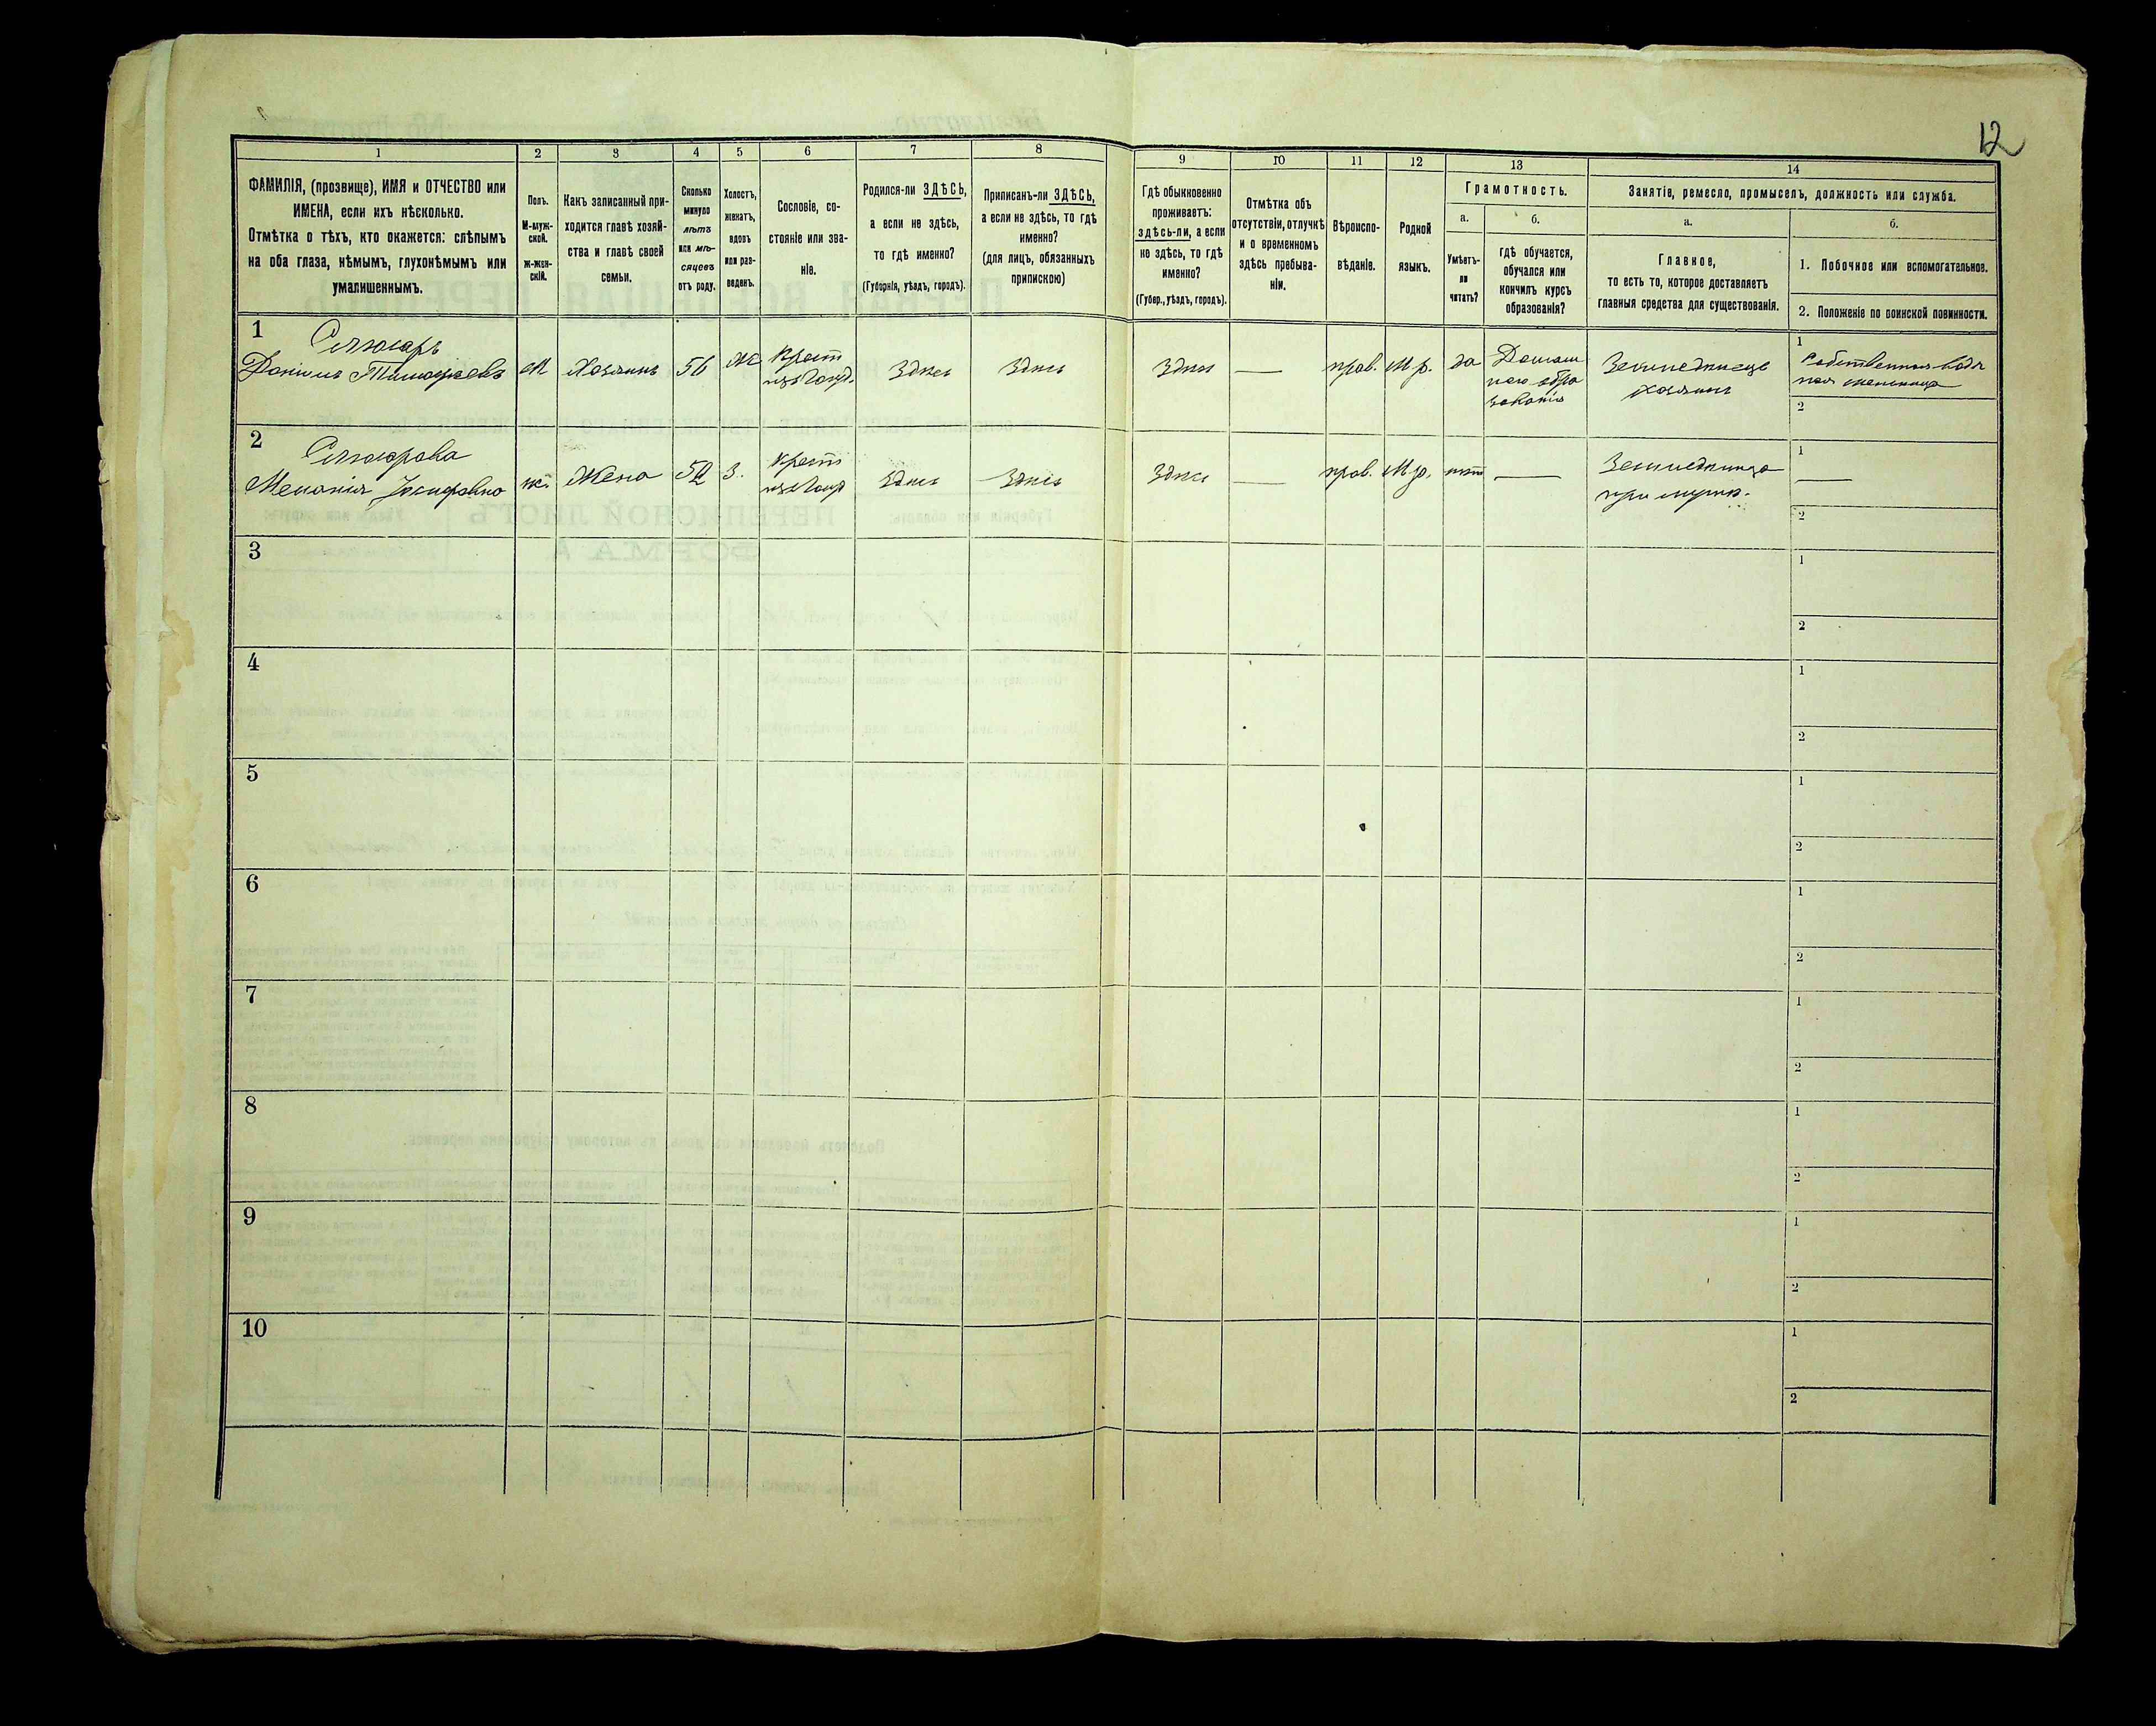 12
1
2
3
4
5
6
7
8
9
10
11
12
13
14
ФАМИЛІЯ, (прозвище), ИМЯ и ОТЧЕСТВО или
ИМЕНА, если ихъ нѣсколько.
Отмѣтка о тѣхъ, кто окажется: слѣпымъ
на оба глаза, нѣмымъ, глухонѣмымъ или
умалишеннымъ.
Полъ.
М-муж-
ской.
Ж-жен-
скій.
Какъ записанный при-
ходится главѣ хозяй-
ства и главѣ своей
семьи.
Сколько
минуло
лѣтъ
или мѣ-
сяцевъ
отъ роду.
Холостъ,
женатъ,
вдовъ
или раз-
веденъ.
Сословіе, со-
стояніе или зва-
ніе.
Родился-ли ЗДѢСЬ,
а если не здѣсь,
то гдѣ именно?
(Губернія, уѣздъ, городъ).
Приписанъ-ли ЗДѢСЬ,
а если не здѣсь, то гдѣ
именно?
(для лицъ, обязанныхъ
припискою)
Гдѣ обыкновенно
проживаетъ:
здѣсь-ли, а если
не здѣсь, то гдѣ
именно?
(Губер., уѣздъ, городъ).
Отмѣтка объ
отсутствіи, отлучкѣ
и о временномъ
здѣсь пребыва-
ніи.
Вѣроиспо-
вѣданіе.
Родной
языкъ.
Грамотность.
а.
Умѣетъ-
ли
читать?
б.
гдѣ обучается,
обучался или
кончилъ курсъ
образованія?
Занятіе, ремесло, промыселъ, должность или служба.
а.
Главное,
то есть то, которое доставляетъ
главныя средства для существованія.
б.
1. Побочное или вспомогательное.
2. Положеніе по воинской повинности.
1
Даніилъ Тимофеевъ
М
Хозяинъ
56
Ж
Крест
изъ
Здѣсь
Здѣсь
Здѣсь
—
прав.
М р.
да
Домаш
образованія
Земледѣлецъ
хозяинъ
1
Собственная водя
ная мельница
2
2
Меланія Іосифовна
ж.
Жена
52
З.
Крест
изъ
Здѣсь
Здѣсь
Здѣсь
—
прав.
М р.
нѣт
—
Земледѣлица
при мужѣ.
1
—
2
3
1
2
4
1
2
5
1
2
6
1
2
7
1
2
8
1
2
9
1
2
10
1
2